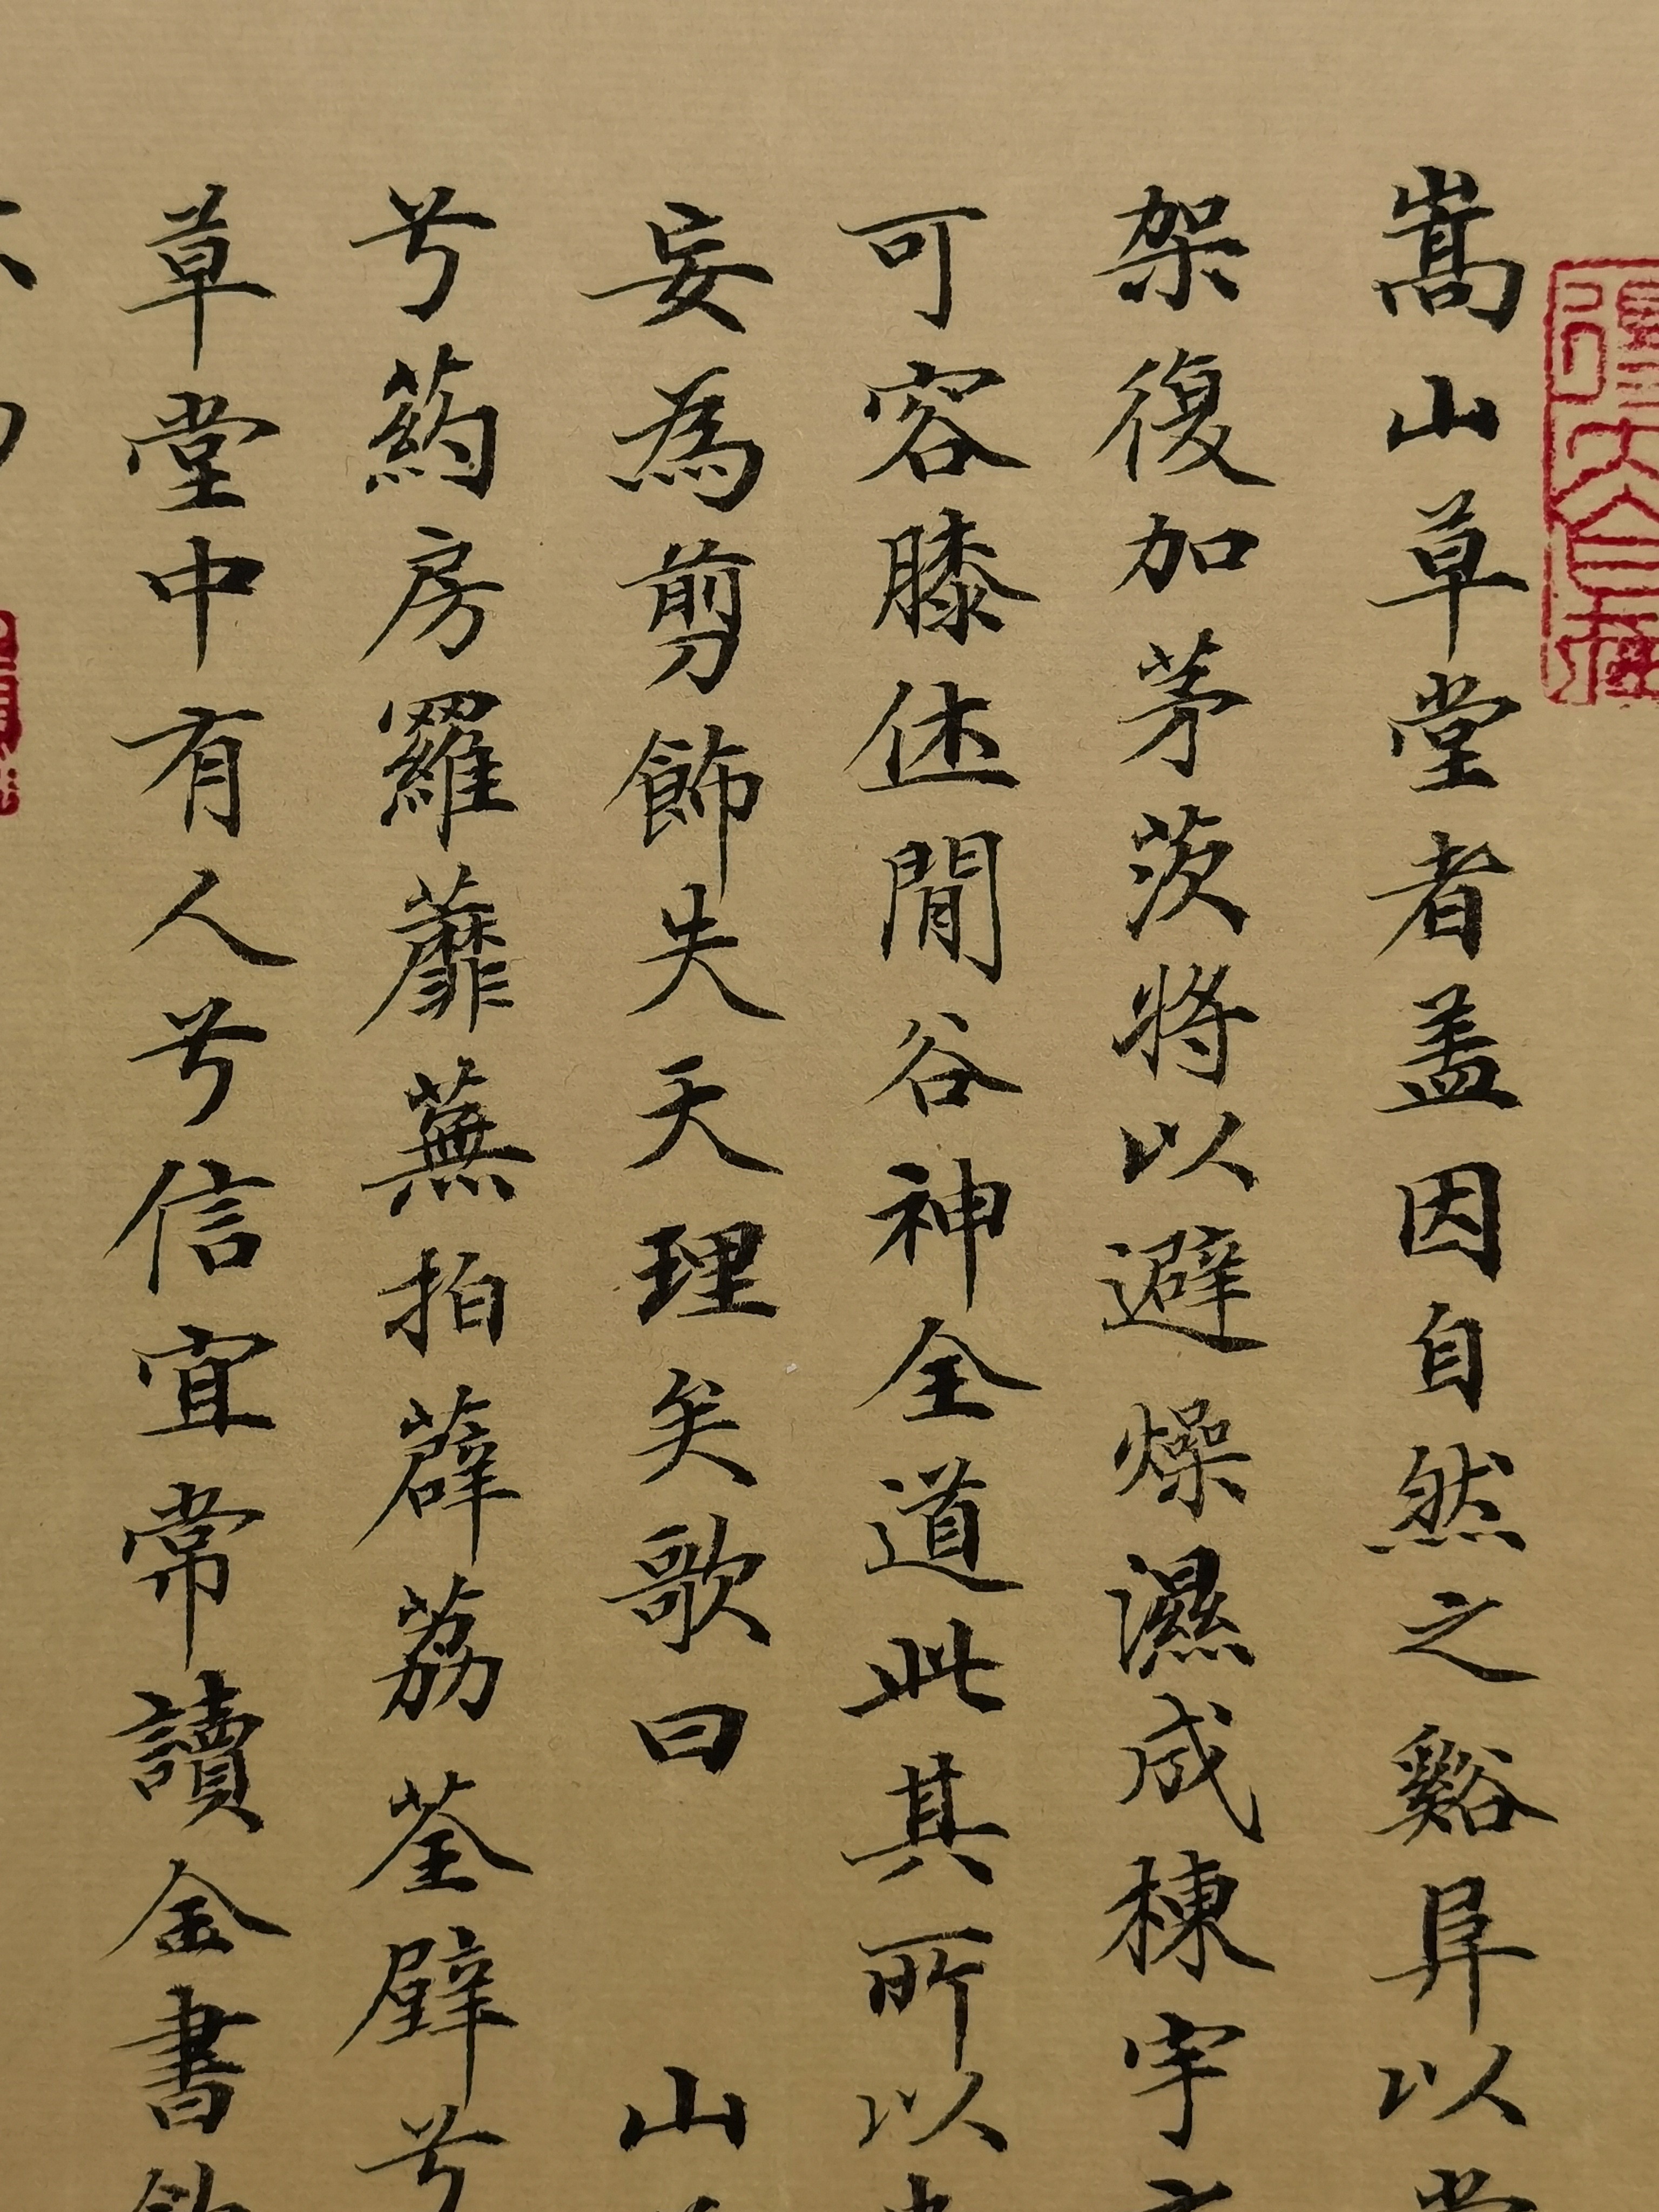 嵩山草堂者盖因自然之谿阜以
架復加茅茨將以避燥濕成棟宇
可容膝休閒谷神全道此其所以
妄為剪飾失天理矣歌曰　山
兮葯房羅蘼蕪拍薜荔荃壁兮
草堂中有人兮信宜常讀金書